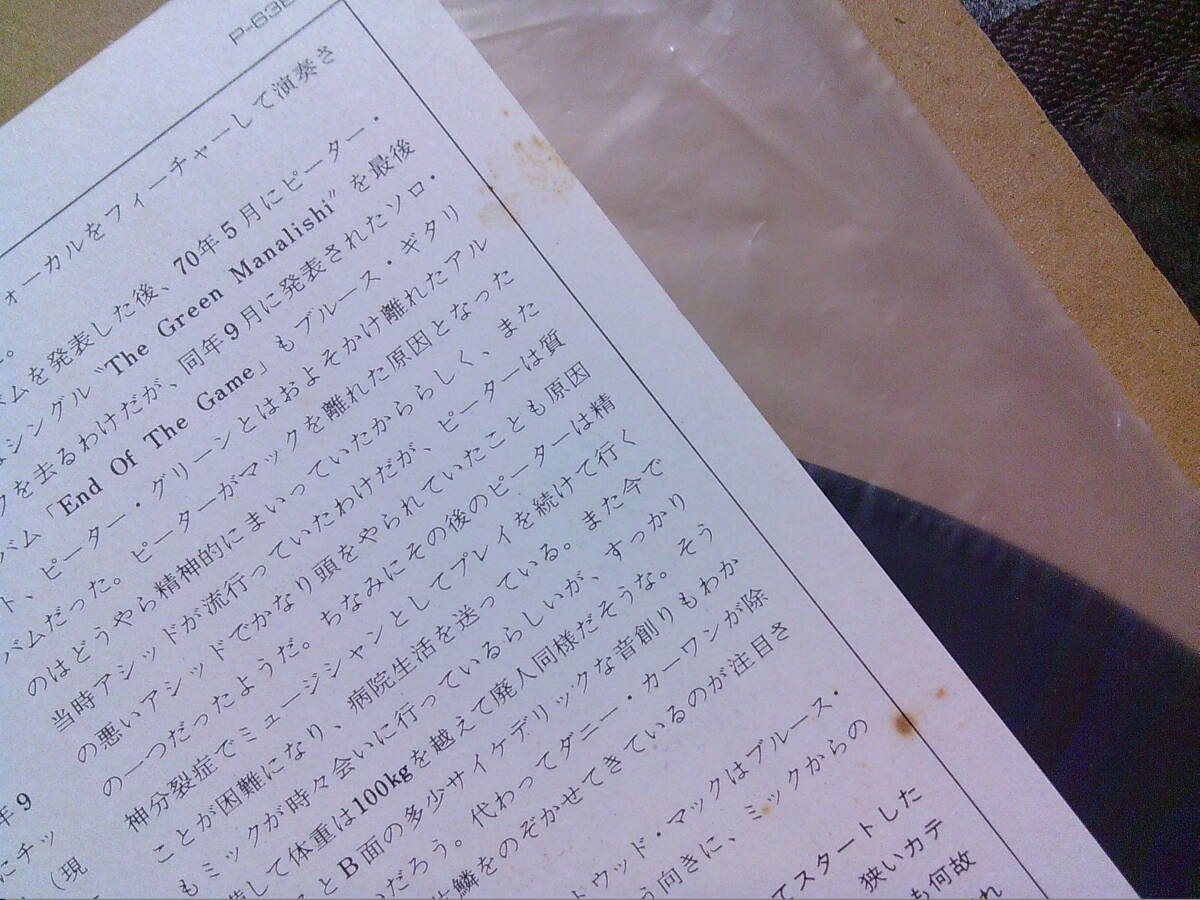 P-63
ォーカルをフィーチャーして演奏さ
。
ムを発表した後、70年5月にピーター・
シングル〝The Green Manalishi〞を最後
クを去るわけだが、同年9月に発表されたソロ・
バム「End Of The Game」もブルース・ギタリ
ト、ピーター・グリーンとはおよそかけ離れたアル
バムだった。ピーターがマックを離れた原因となった
のはどうやら精神的にまいっていたかららしく、また
当時アシッドが流行っていたわけだが、ピーターは質
の悪いアシッドでかなり頭をやられていたことも原因
の一つだったようだ。ちなみにその後のピーターは精
神分裂症でミュージシャンとしてプレイを続けて行く
ことが困難になり、病院生活を送っている。また今で
もミックが時々会いに行っているらしいが、すっかり
して体重は100kgを越えて廃人同様だそうな。そう
とB面の多少サイケデリックな音創りもわか
だろう。代わってダニー・カーワンが除
片鱗をのぞかせてきているのが注目さ
トウッド・マックはブルース・
う向きに、ミックからの
てスタートした
狭いカテ
も何故
れ
年9
にチッ
（現